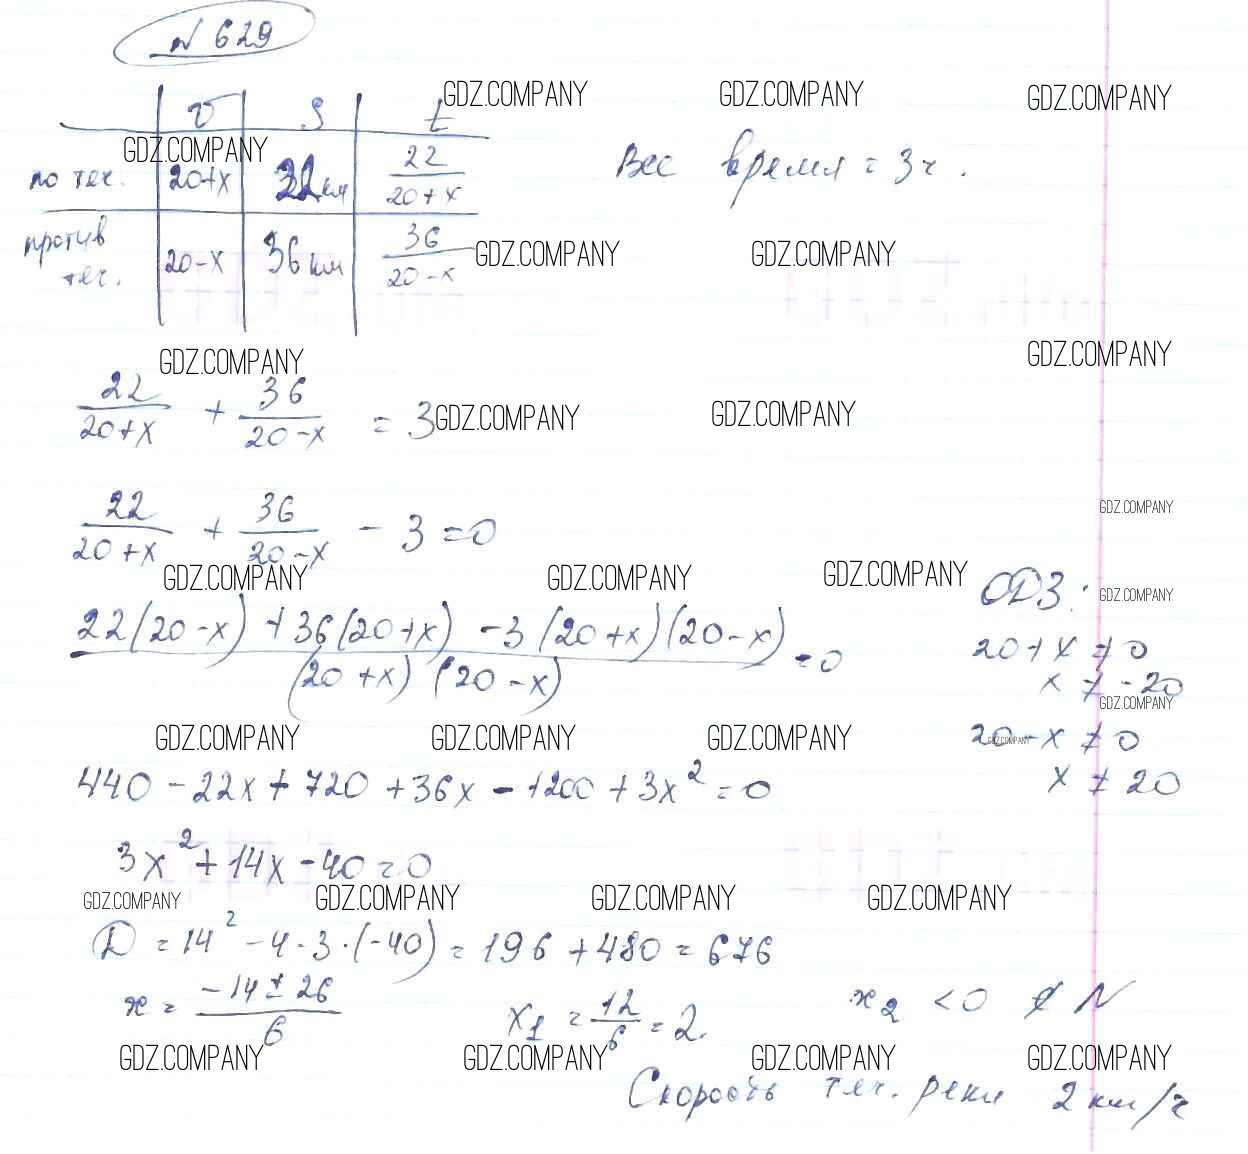 № 629
v S t
GDZ.COMPANY GDZ.COMPANY GDZ.COMPANY
GDZ.COMPANY
по теч. 20+x 22км 22/(20+x) Вес время = 3ч.
против теч. 20-x 36км 36/(20-x)
GDZ.COMPANY GDZ.COMPANY
GDZ.COMPANY GDZ.COMPANY
22/(20+x) + 36/(20-x) = 3
GDZ.COMPANY GDZ.COMPANY
GDZ.COMPANY
22/(20+x) + 36/(20-x) - 3 = 0
GDZ.COMPANY GDZ.COMPANY GDZ.COMPANY
ОДЗ:
GDZ.COMPANY
(22(20-x) + 36(20+x) - 3(20+x)(20-x))/((20+x)(20-x)) = 0
20+x ≠ 0
x ≠ -20
GDZ.COMPANY
20-x ≠ 0
GDZ.COMPANY
x ≠ 20
GDZ.COMPANY GDZ.COMPANY GDZ.COMPANY
440 - 22x + 720 + 36x - 1200 + 3x² = 0
3x² + 14x - 40 = 0
GDZ.COMPANY GDZ.COMPANY GDZ.COMPANY GDZ.COMPANY
D = 14² - 4·3·(-40) = 196 + 480 = 676
x = (-14 ± 26)/6 x₁ = 12/6 = 2. x₂ < 0 ∉ N
GDZ.COMPANY GDZ.COMPANY GDZ.COMPANY GDZ.COMPANY
Скорость теч. реки 2км/ч